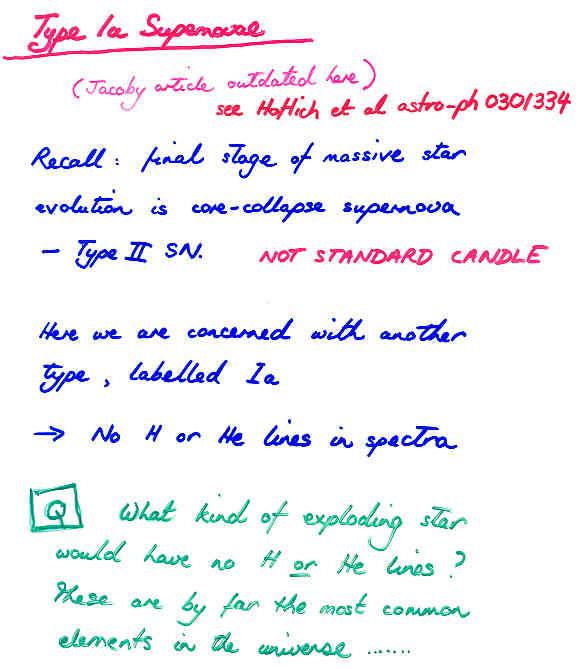 Type Ia Supernovae
(Jacoby article outdated here)
see Höflich et al astro-ph 0301334
Recall: final stage of massive star
evolution is core-collapse supernova
- Type II SN. NOT STANDARD CANDLE
Here we are concerned with another
type, labelled Ia
→ No H or He lines in spectra
Q What kind of exploding star
would have no H or He lines?
These are by far the most common
elements in the universe ......